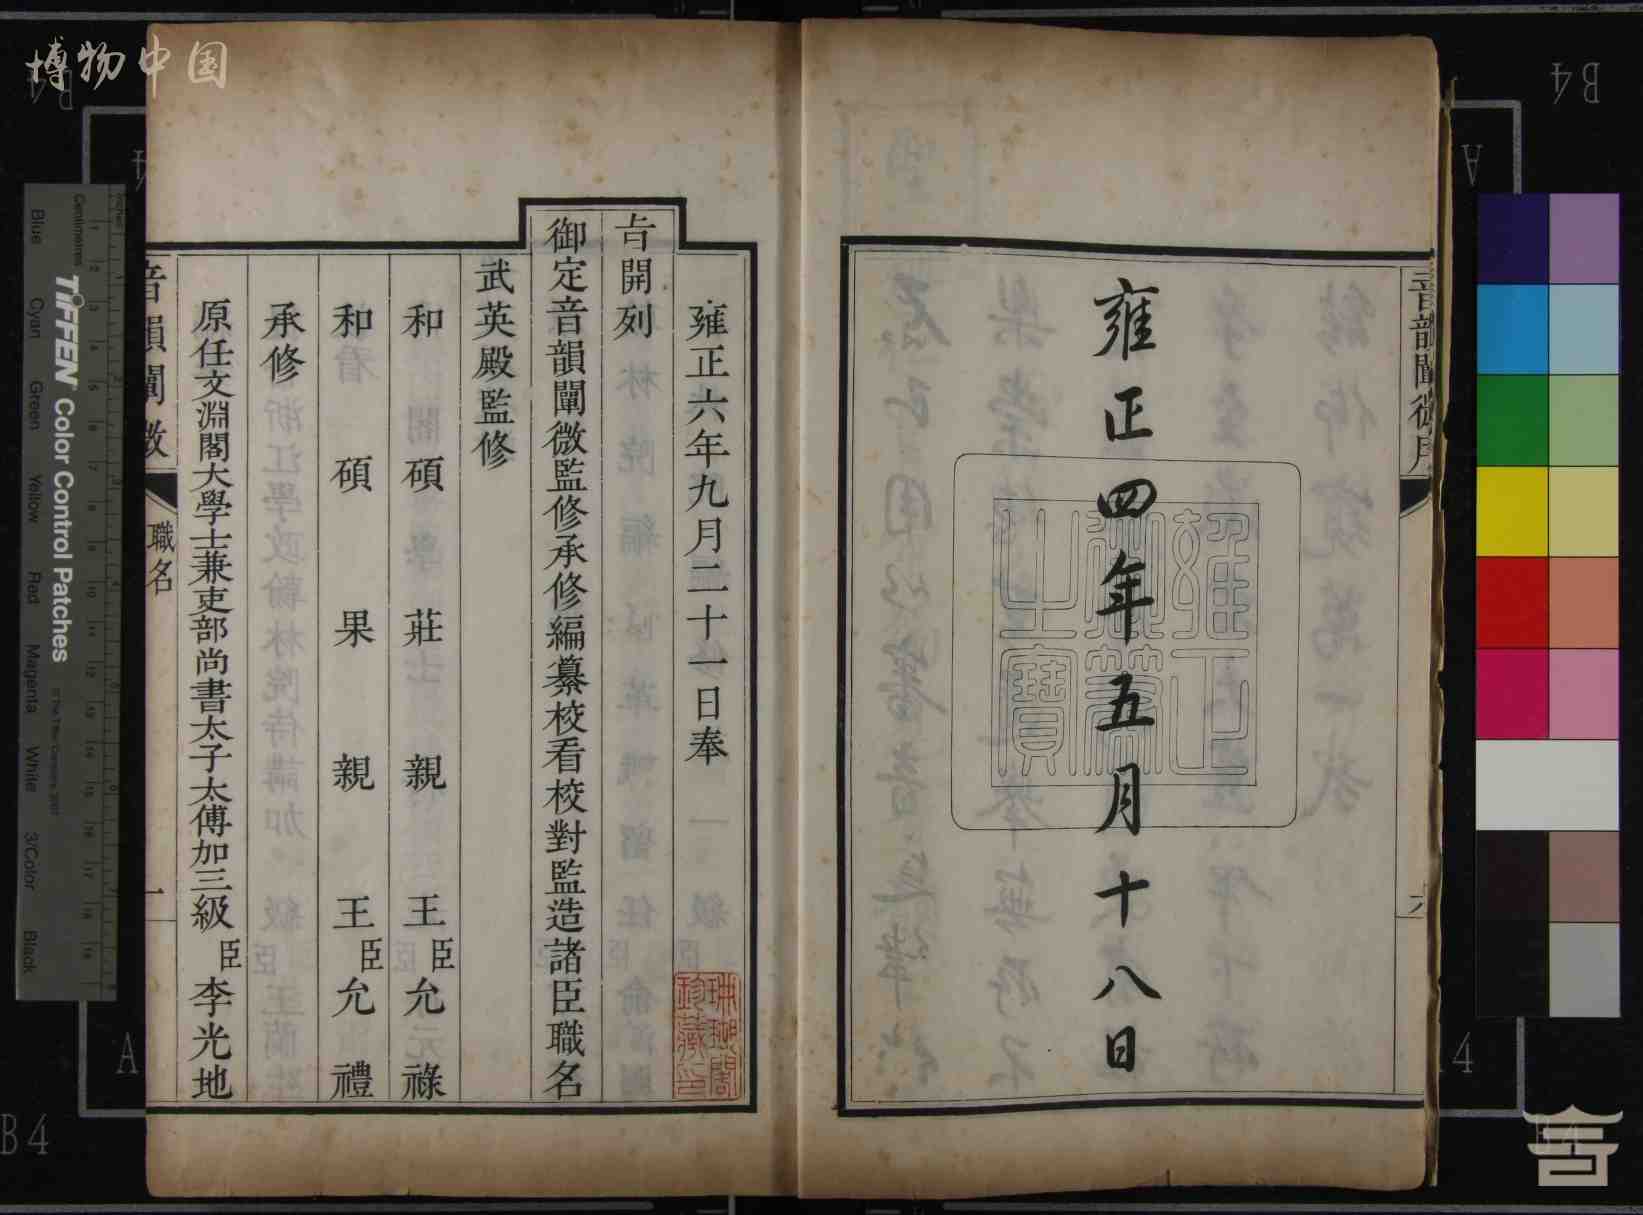 雍正四年五月十八日
雍正御筆之寶
雍正六年九月二十一日奉
旨開列
御定音韻闡微監修承修編纂校看校對監造諸臣職名
武英殿監修
和碩莊親王臣允祿
和碩果親王臣允禮
承修
原任文淵閣大學士兼吏部尚書太子太傅加三級臣李光地
音韻闡微
職名
一
珊瑚閣珍藏印
博物中国
TIFFEN Color Control Patches
Blue
Cyan
Green
Yellow
Red
Magenta
White
3/Color
Black
Centimetres
B4
B4
A
A
B4